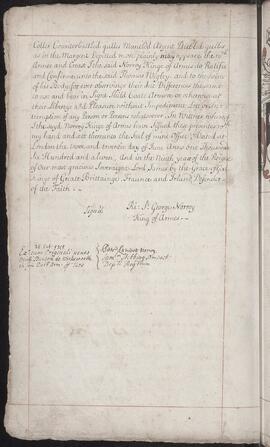 Coller Counterbattled gules Maneled Argent Dubled gules
as in the Margent depicted more plainly may appeare the wch
Armes and Creast I the said Norroy King of Armes do Ratifie
and Confirme unto the said Thomas Wigley. and to the Issue
of his Body for ever observing their due Differences Hancient
to use and bear in Signe Shield Coate Armour or otherwise at
their Liberty and Pleasure without Impediment Let or Inter-
ruption of any Person or Persons whatsoever. In Witness whereof
I the sayd Norroy King of Armes have Signed these presents with
my hand and set thereunto the Seal of mine Office Dated at
London the two and twentie day of June Anno One Thousand
Six Hundred and aleven, and in the Ninth year of the Reigne
of our most gracious Soveraigne Lord James by the Grace of God
Kinge of Greate Brittaine, Fraunce and Irland Defender
of the Faith
Signed Ri: St George Norroy
King of Armes
Originali